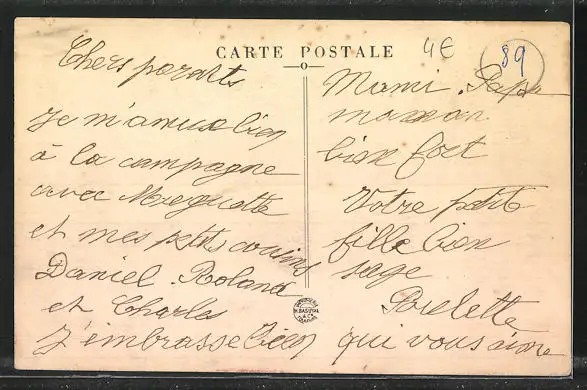 CARTE POSTALE
4€
89
Chers parents
Je m'amuse bien
à la campagne
avec
et mes petits cousins
Daniel. Roland
et Charles
J'embrasse bien
Mami. Papa
maman
bise fort
Votre petite
fille bien
sage
Paulette
qui vous aime